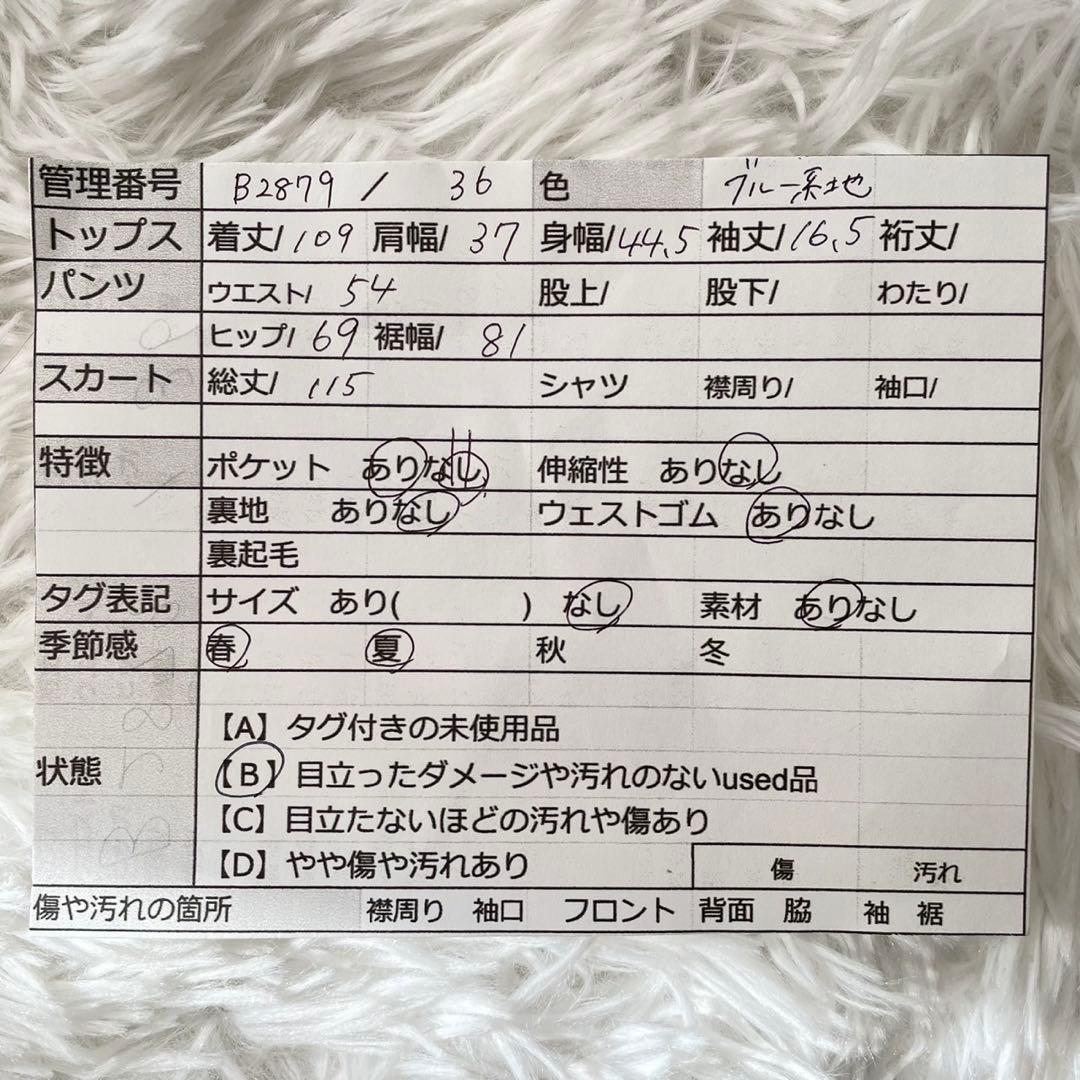 管理番号 B2879 / 36 色 ブルー系地
トップス 着丈/109 肩幅/37 身幅/44.5 袖丈/16.5 裄丈/
パンツ ウエスト/ 54 股上/ 股下/ わたり/
ヒップ/ 69 裾幅/ 81
スカート 総丈/ 115 シャツ 襟周り/ 袖口/
特徴 ポケット ありなし 伸縮性 ありなし
裏地 ありなし ウェストゴム ありなし
裏起毛
タグ表記 サイズ あり( ) なし 素材 ありなし
季節感 春 夏 秋 冬
【A】タグ付きの未使用品
状態 【B】目立ったダメージや汚れのないused品
【C】目立たないほどの汚れや傷あり
【D】やや傷や汚れあり 傷 汚れ
傷や汚れの箇所 襟周り 袖口 フロント 背面 脇 袖 裾